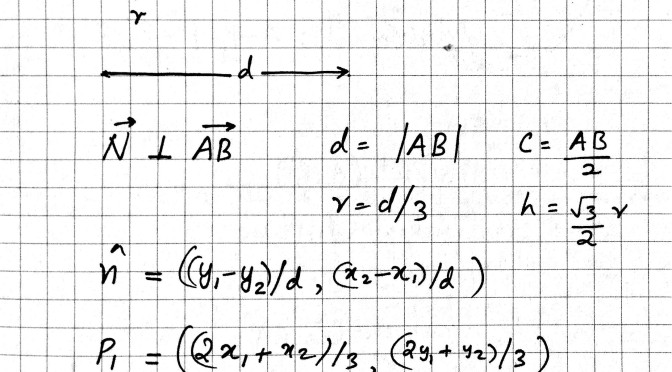 r
d
N⃗ ⊥ AB⃗ d = |AB| C = AB/2
r = d/3 h = √3/2 r
n̂ = ((y₁-y₂)/d, (x₂-x₁)/d)
P₁ = ((2x₁+x₂)/3, (2y₁+y₂)/3)